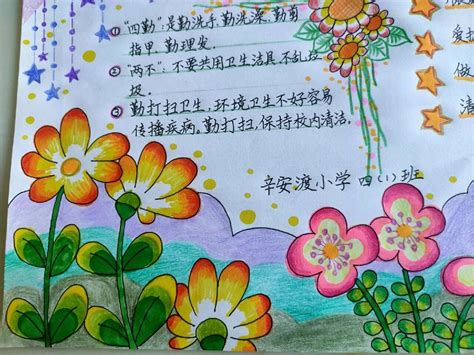 ① "四勤":是勤洗手,勤洗澡,勤剪
指甲,勤理发.
② "两不":不要共用卫生洁具,不乱
圾.
③ 勤打扫卫生,环境卫生不好容易
传播疾病,勤打扫,保持校内清洁.
辛安渡小学 四(1)班
洁